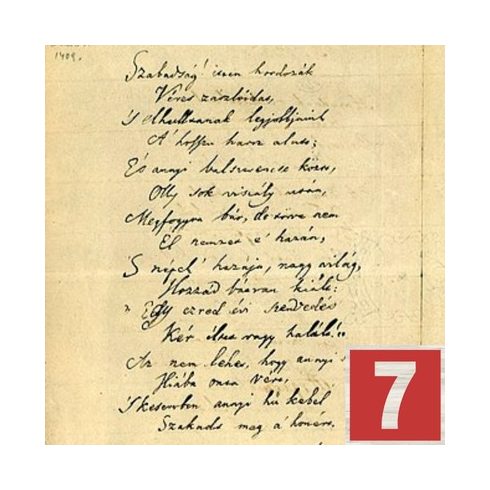 1409.
Szabadság! itten hordozák
Véres zászlóidat,
'S elhulltanak legjobbjaink
A' hosszu harcz alatt;
És annyi balszerencse közt,
Olly sok viszály után,
Megfogyva bár, de törve nem
Él nemzet e' hazán,
'S népek' hazája, nagy világ,
Hozzád bátran kiált:
„Egy ezred évi szenvedés
Kér éltet vagy halált!"
Az nem lehet, hogy annyi
Hiába onta vért,
'S keservben annyi hű kebel
Szakadt meg a' honért.
7